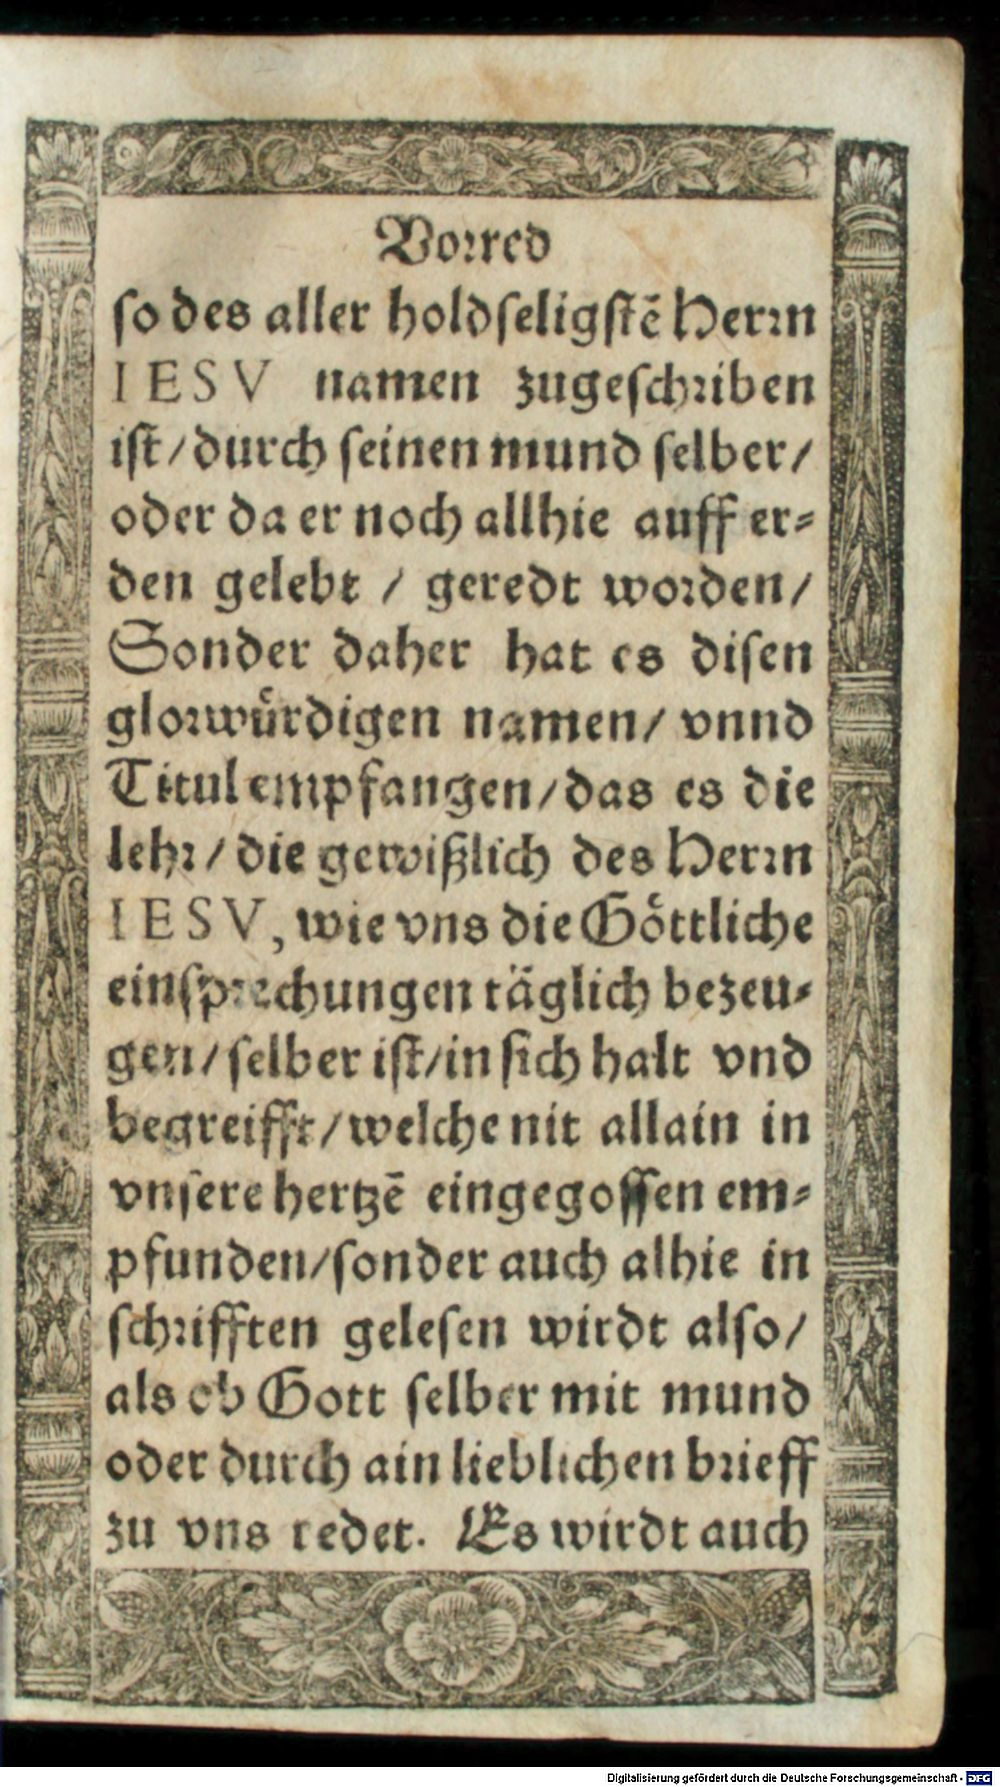 Vorred
so des aller holdseligstē Herrn
IESV namen zugeschriben
ist/durch seinen mund selber/
oder da er noch allhie auff er-
den gelebt / geredt worden/
Sonder daher hat es disen
glorwuͤrdigen namen/ vnnd
Titul empfangen/das es die
lehr/die gewißlich des Herrn
IESV, wie vns die Goͤttliche
einsprechungen täglich bezeu-
gen/selber ist/in sich halt vnd
begreifft/welche nit allain in
vnsere hertzē eingegossen em-
pfunden/sonder auch alhie in
schrifften gelesen wirdt also/
als ob Gott selber mit mund
oder durch ain lieblichen brieff
zu vns redet. Es wirdt auch
Digitalisierung gefördert durch die Deutsche Forschungsgemeinschaft - DFG